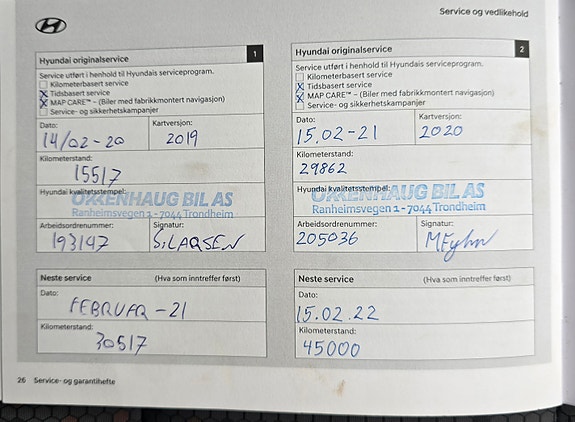 Service og vedlikehold
Hyundai originalservice
1
Service utført i henhold til Hyundais serviceprogram.
Kilometerbasert service
Tidsbasert service
MAP CARE™ – (Biler med fabrikkmontert navigasjon)
Service- og sikkerhetskampanjer
Dato:
Kartversjon:
14/02-20
2019
Kilometerstand:
15517
Hyundai kvalitetsstempel:
OKKENHAUG BIL AS
Ranheimsvegen 1 - 7044 Trondheim
Arbeidsordrenummer:
Signatur:
193147
S.LARSEN
Neste service
(Hva som inntreffer først)
Dato:
FEBRUAR -21
Kilometerstand:
30517
Hyundai originalservice
2
Service utført i henhold til Hyundais serviceprogram.
Kilometerbasert service
Tidsbasert service
MAP CARE™ – (Biler med fabrikkmontert navigasjon)
Service- og sikkerhetskampanjer
Dato:
Kartversjon:
15.02-21
2020
Kilometerstand:
29862
Hyundai kvalitetsstempel:
OKKENHAUG BIL AS
Ranheimsvegen 1 - 7044 Trondheim
Arbeidsordrenummer:
Signatur:
205036
Neste service
(Hva som inntreffer først)
Dato:
15.02.22
Kilometerstand:
45000
26 Service- og garantihefte